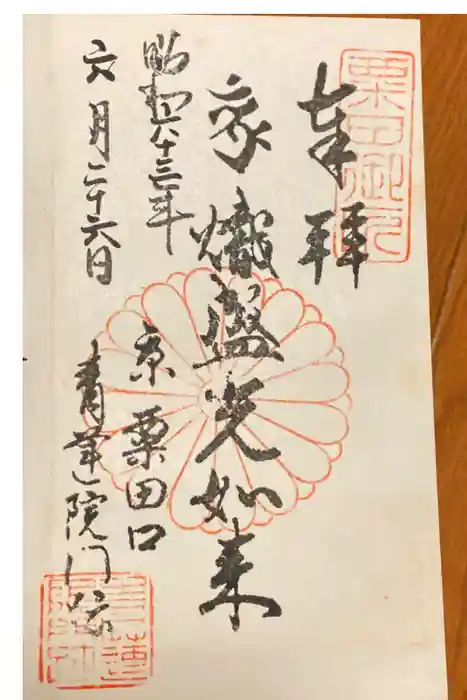 奉拝
熾盛光如来
昭和六十三年
六月二十六日
京 粟田口
青蓮院門跡
粟田御印